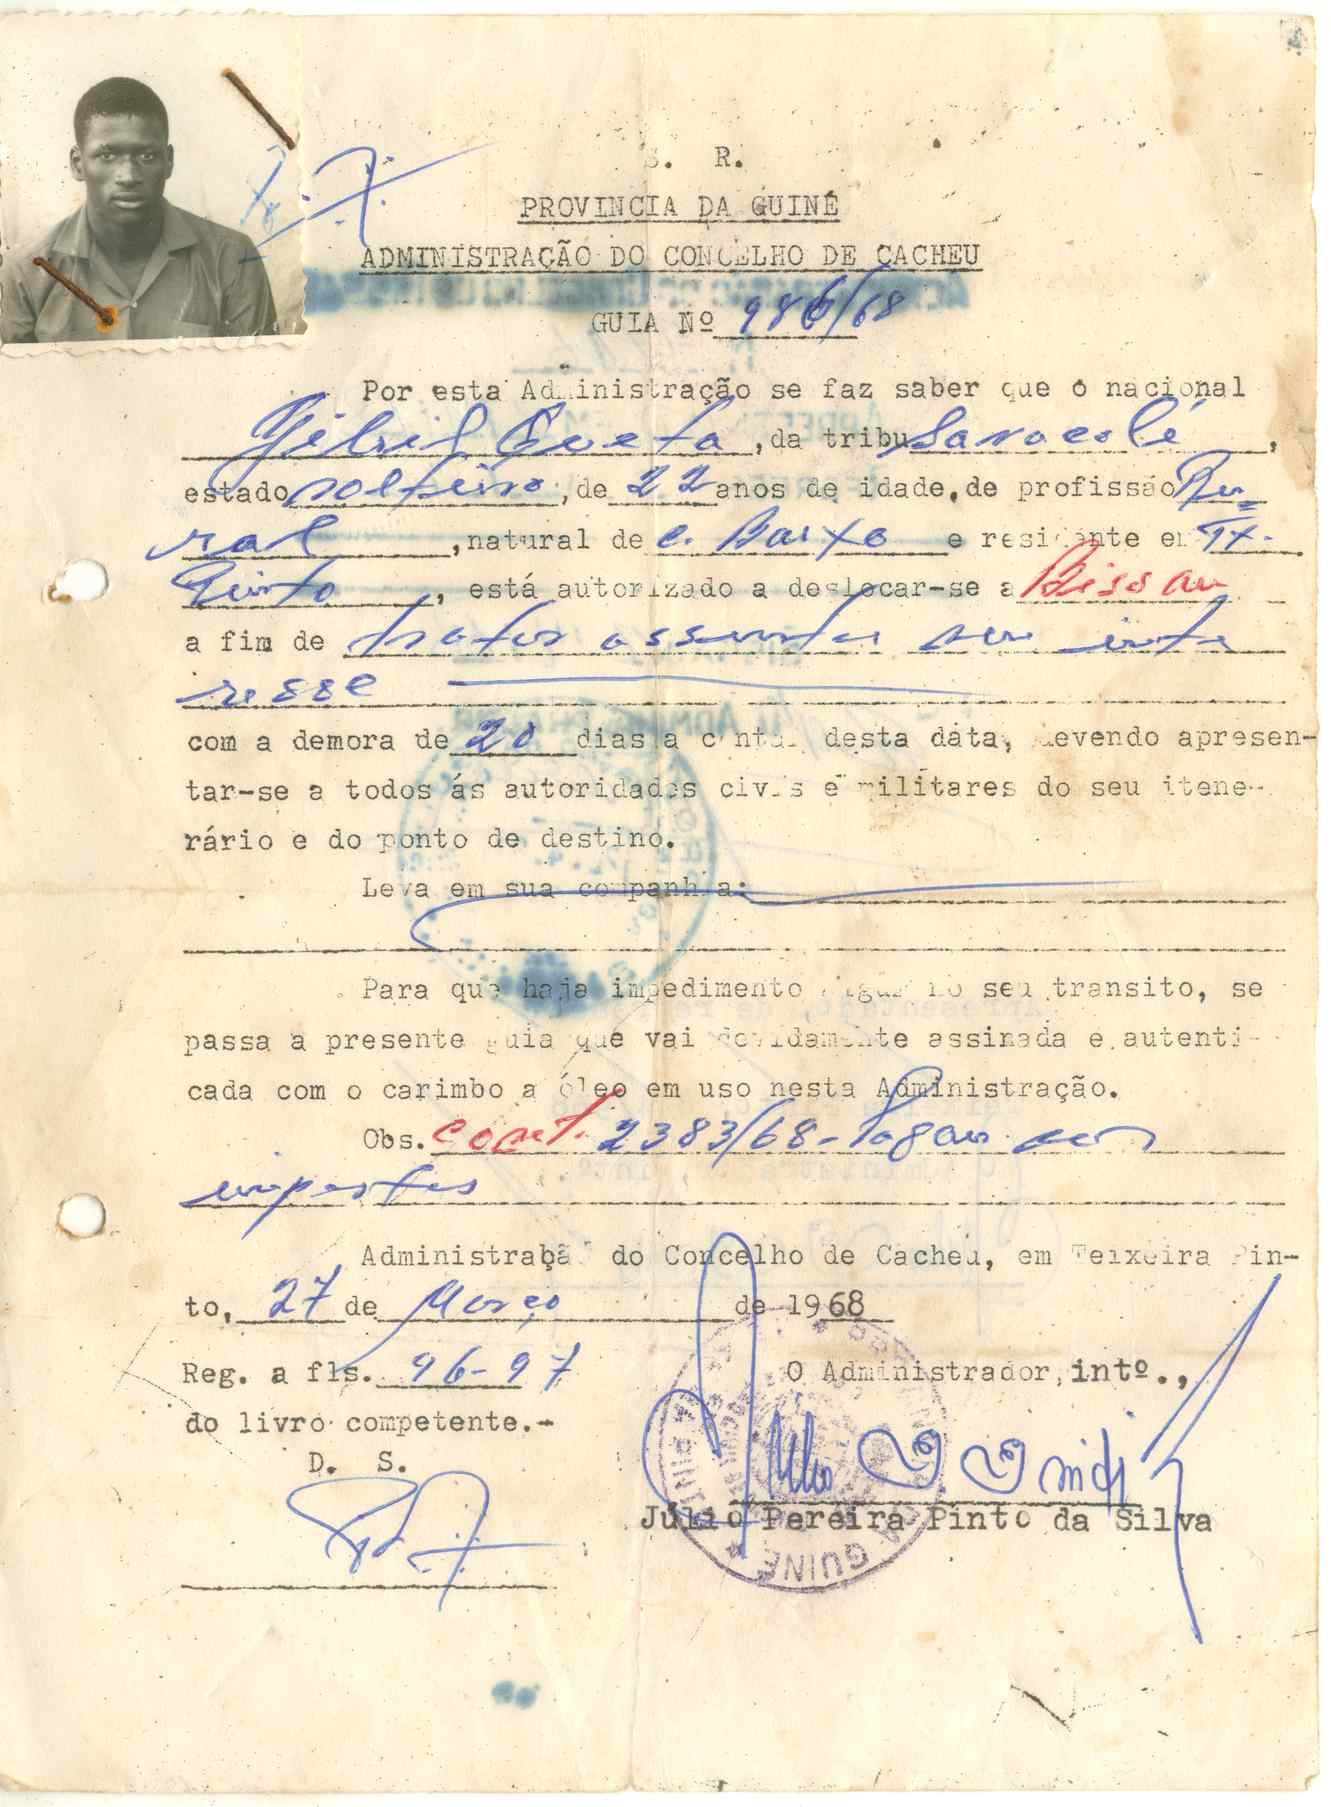 S. R.
PROVINCIA DA GUINÉ
ADMINISTRAÇÃO DO CONCELHO DE CACHEU
GUIA Nº 986/68
Por esta Administração se faz saber que o nacional
, da tribu Saracolé,
estado solteiro, de 22 anos de idade, de profissão Ru=
ral, natural de C. Baixo e residente em Tx.
Pinto, está autorizado a deslocar-se a Bissau
a fim de tratar assuntos seu inte
resse
com a demora de 20 dias a contar desta data, devendo apresen-
tar-se a todos ás autoridades civis e militares do seu itene-
rário e do ponto de destino.
Leva em sua companhia:
Para que haja impedimento algum no seu transito, se
passa a presente guia que vai devidamente assinada e autenti-
cada com o carimbo a óleo em uso nesta Administração.
Obs. cont. 2383/68-Pagou seus
impostos
Administração do Concelho de Cacheu, em Teixeira Pin-
to, 27 de Março de 1968
Reg. a fls. 96-97
O Administrador, intº.,
do livro competente.-
D. S.
Júlio Pereira Pinto da Silva